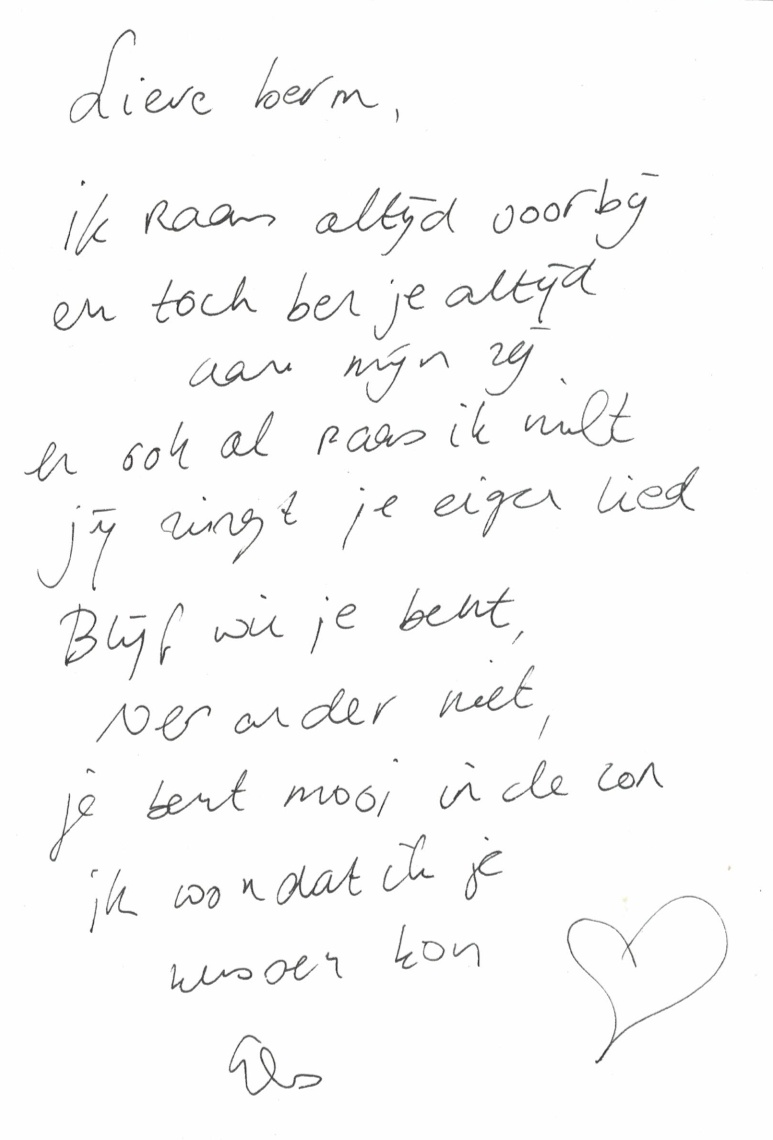 Lieve berm,
ik Raas altijd voorbij
en toch ben je altijd
aan mijn zij
en ook al raas ik niet
jij zingt je eigen lied
Blijf wie je bent,
verander niet,
je bent mooi in de zon
ik wou dat ik je
kussen kon
Els